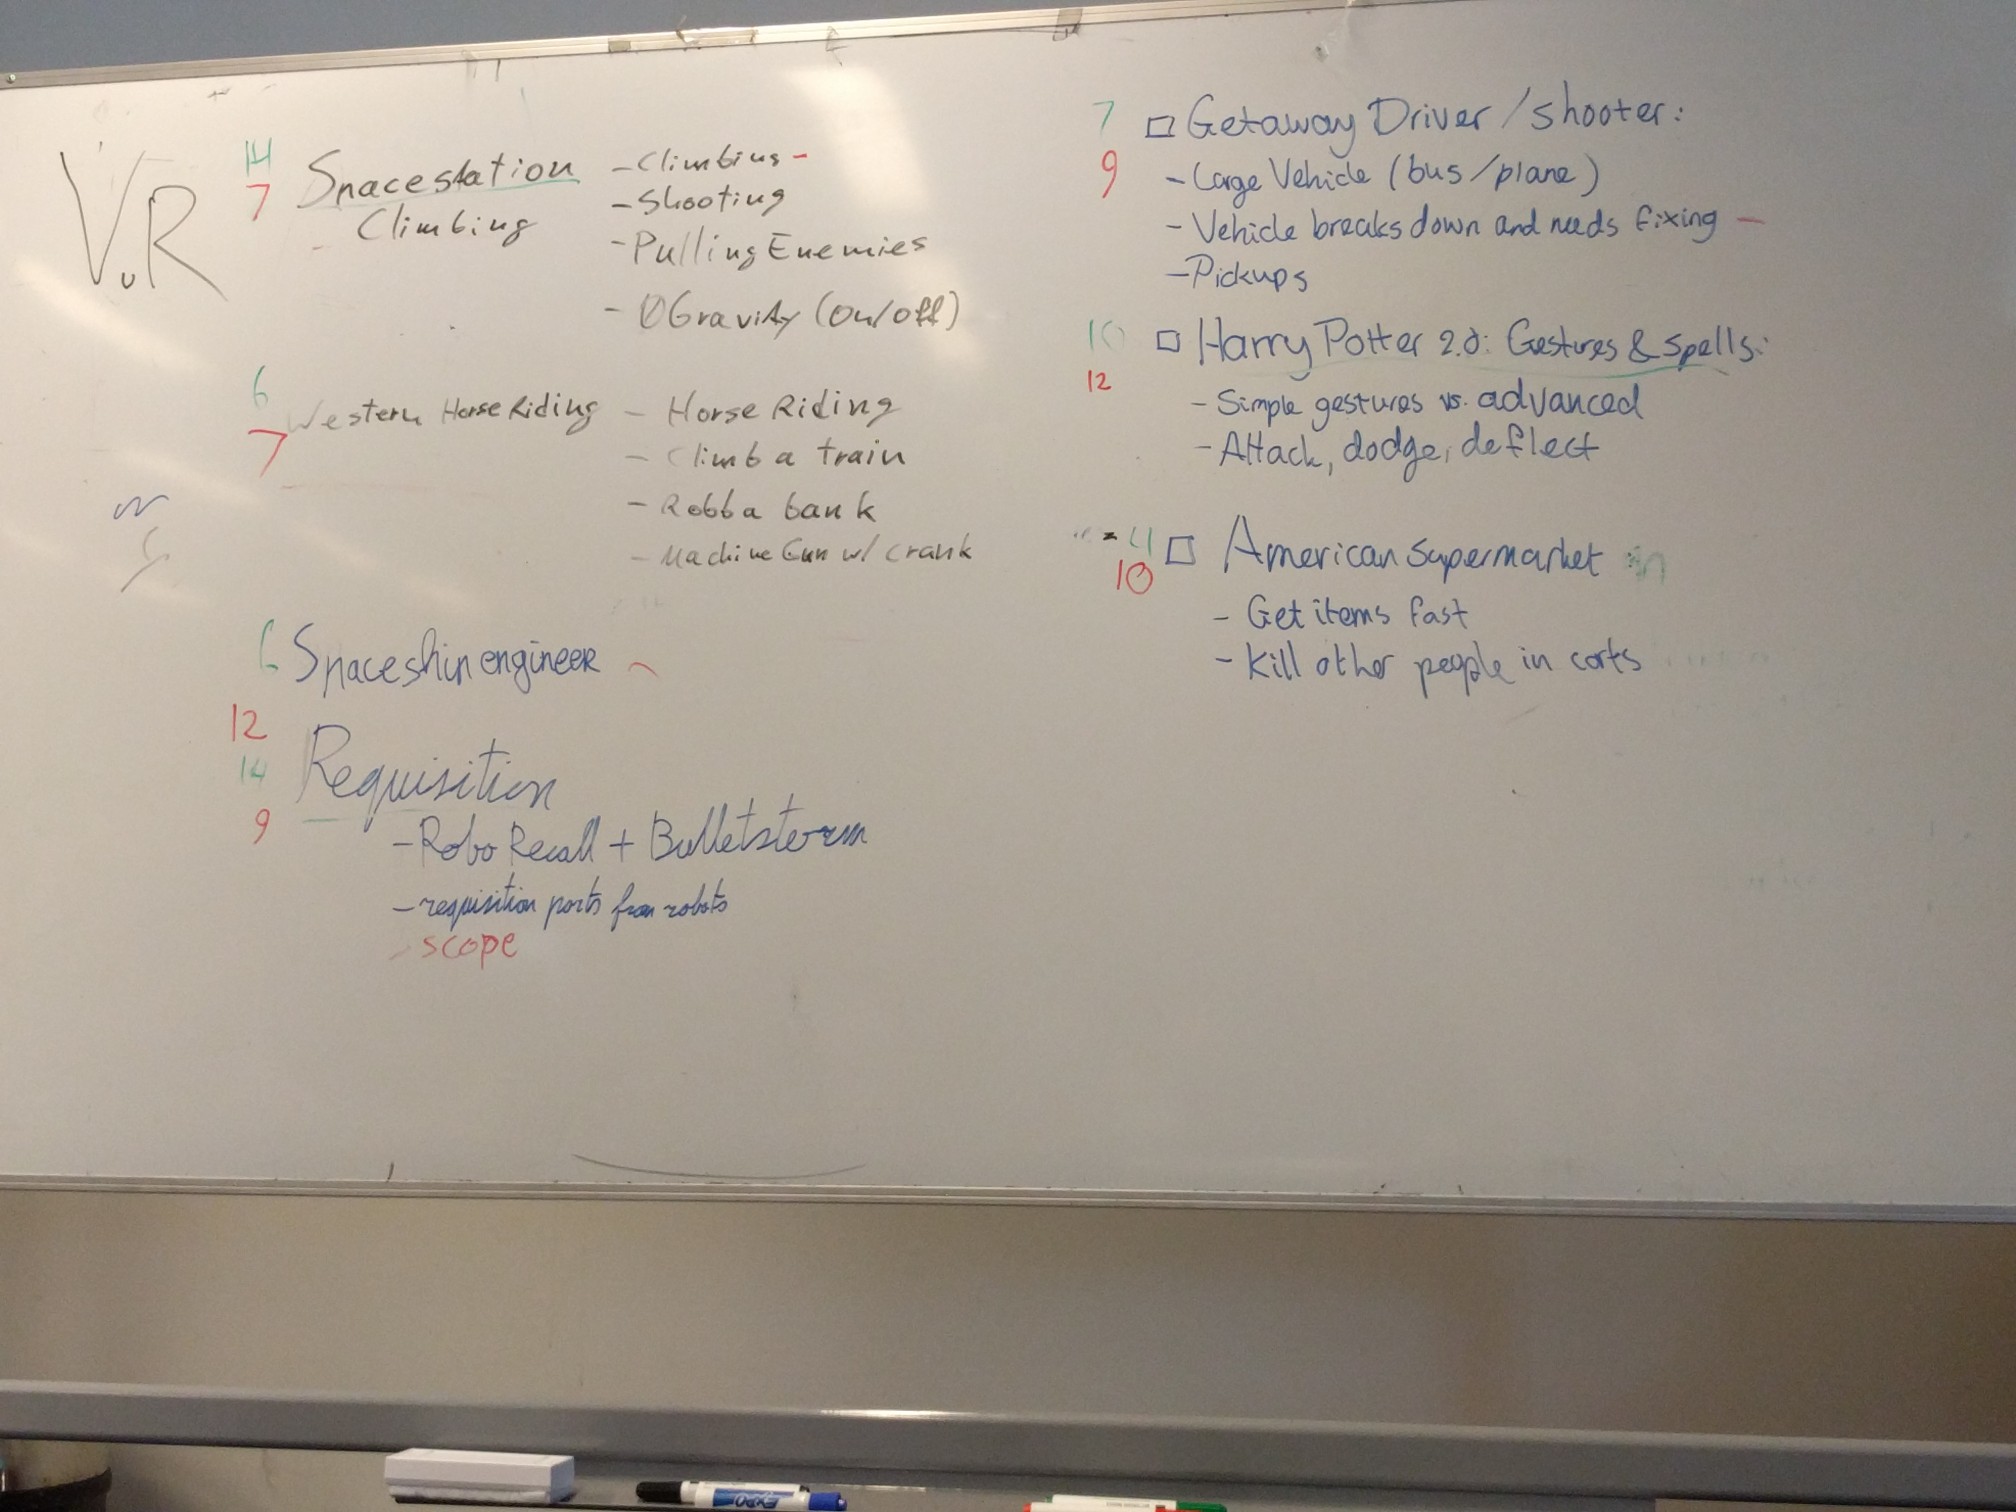 VR
14
7
Spacestation
Climbing
- Climbing -
- Shooting
- Pulling Enemies
- 0Gravity (on/off)
6
7
Western Horse Riding
- Horse Riding
- Climb a train
- Rob a bank
- Machine Gun w/ crank
6
Spaceship engineer
12
14
Requisition
9
- Robo Recall + Bulletstorm
- requisition parts from robots
scope
7
□ Getaway Driver / shooter:
9
- Large Vehicle (bus/plane)
- Vehicle breaks down and needs fixing -
- Pickups
10
□ Harry Potter 2.0: Gestures & spells:
12
- Simple gestures vs. advanced
- Attack, dodge, deflect
4
□ American supermarket
10
- Get items fast
- Kill other people in carts
EXPO